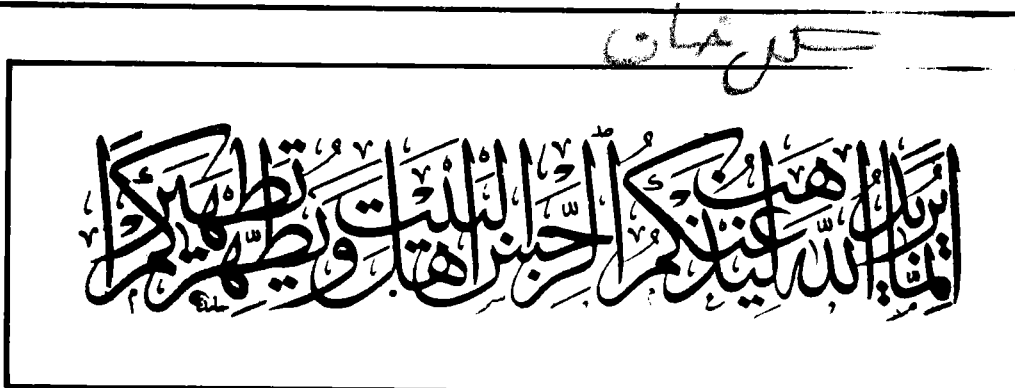 خان
إنما يريد الله ليذهب عنكم الرجس أهل البيت ويطهركم تطهيرا